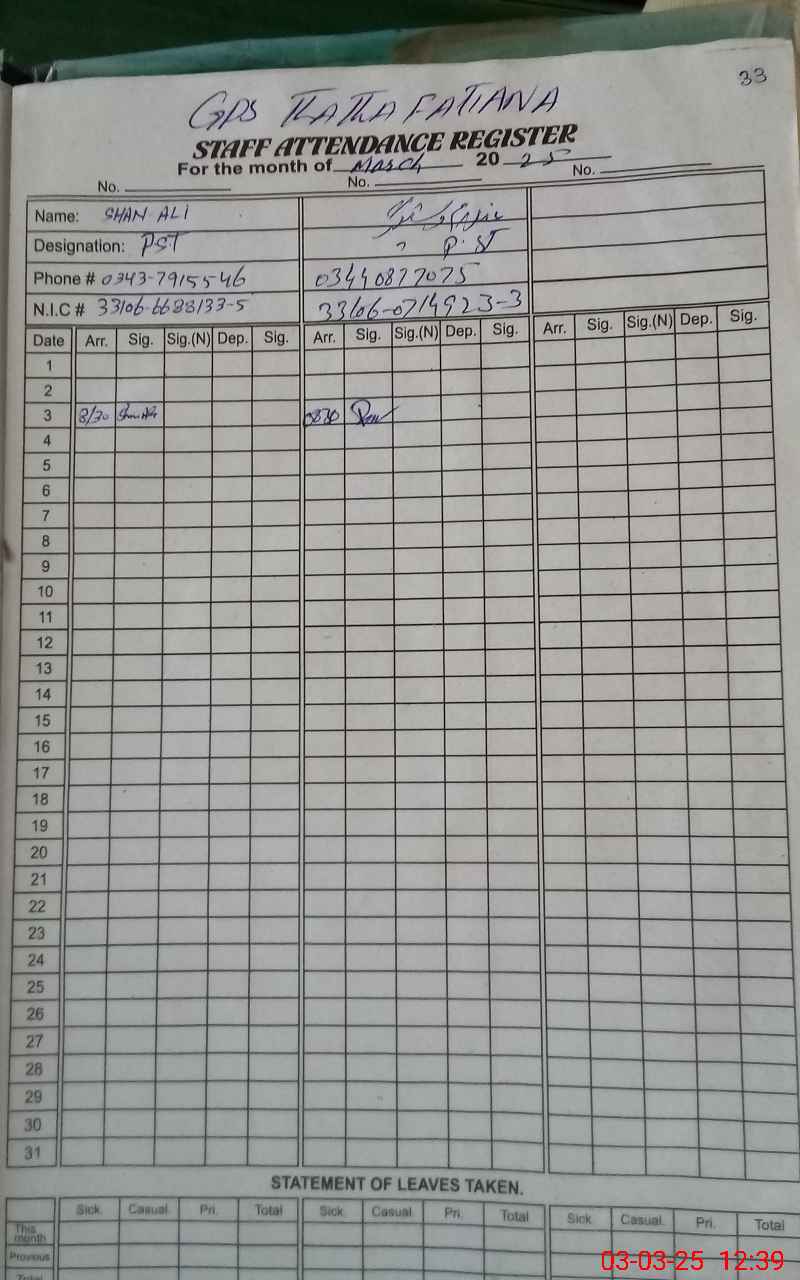 33
GPS THATHA FATIANA
STAFF ATTENDANCE REGISTER
For the month of March 20 25
No. No. No.
Name: SHAN ALI
Designation: PST P.ST
Phone # 0343-7915546 03440877075
N.I.C # 33106-6688133-5 33106-0714923-3
Date Arr. Sig. Sig.(N) Dep. Sig. Arr. Sig. Sig.(N) Dep. Sig. Arr. Sig. Sig.(N) Dep. Sig.
1
2
3 8/30 Shan Ali 0830
4
5
6
7
8
9
10
11
12
13
14
15
16
17
18
19
20
21
22
23
24
25
26
27
28
29
30
31
STATEMENT OF LEAVES TAKEN.
Sick Casual. Pri. Total Sick. Casual. Pri. Total Sick. Casual. Pri. Total
This month
Previous
Total
03-03-25 12:39